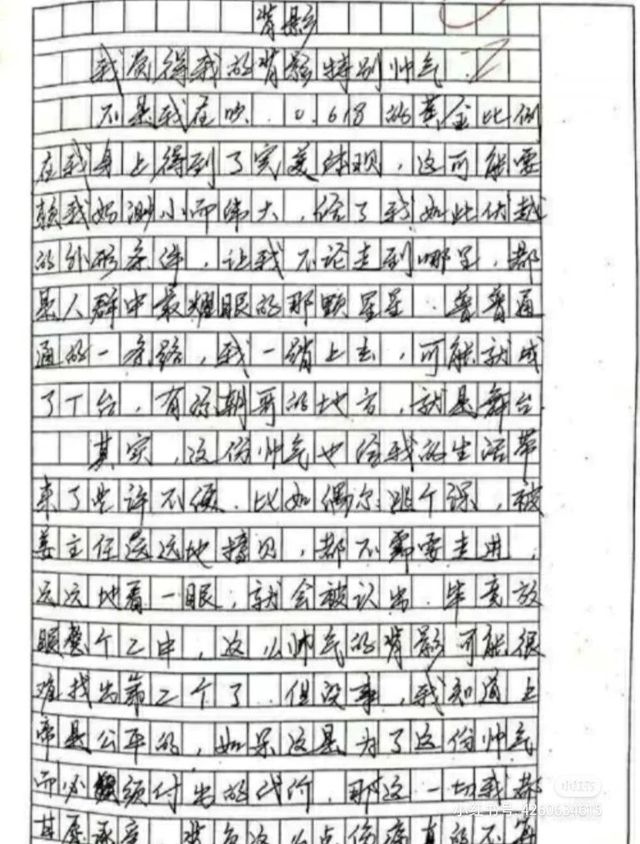 背影
我觉得我的背影特别帅气.
不是我在吹.0.618的黄金比例
在我身上得到了完美体现,这可能要
赖我妈渺小而伟大,给了我如此优越
的外形条件,让我不论走到哪里,都
是人群中最耀眼的那颗星星.普普通
通的一条路,我一踏上去,可能就成
了T台,有你朝哥的地方,就是舞台.
其实,这份帅气也给我的生活带
来了些许不便.比如偶尔逃个课,被
姜主任远远地撞见,都不需要走进,
远远地看一眼,就会被认出.毕竟放
眼整个二中,这么帅气的背影可能很
难找出第二个了.但没事,我知道上
帝是公平的,如果这是为了这份帅气
而必须付出的代价,那这一切我都
甘愿承受.
小红书
小红书号:4260634615